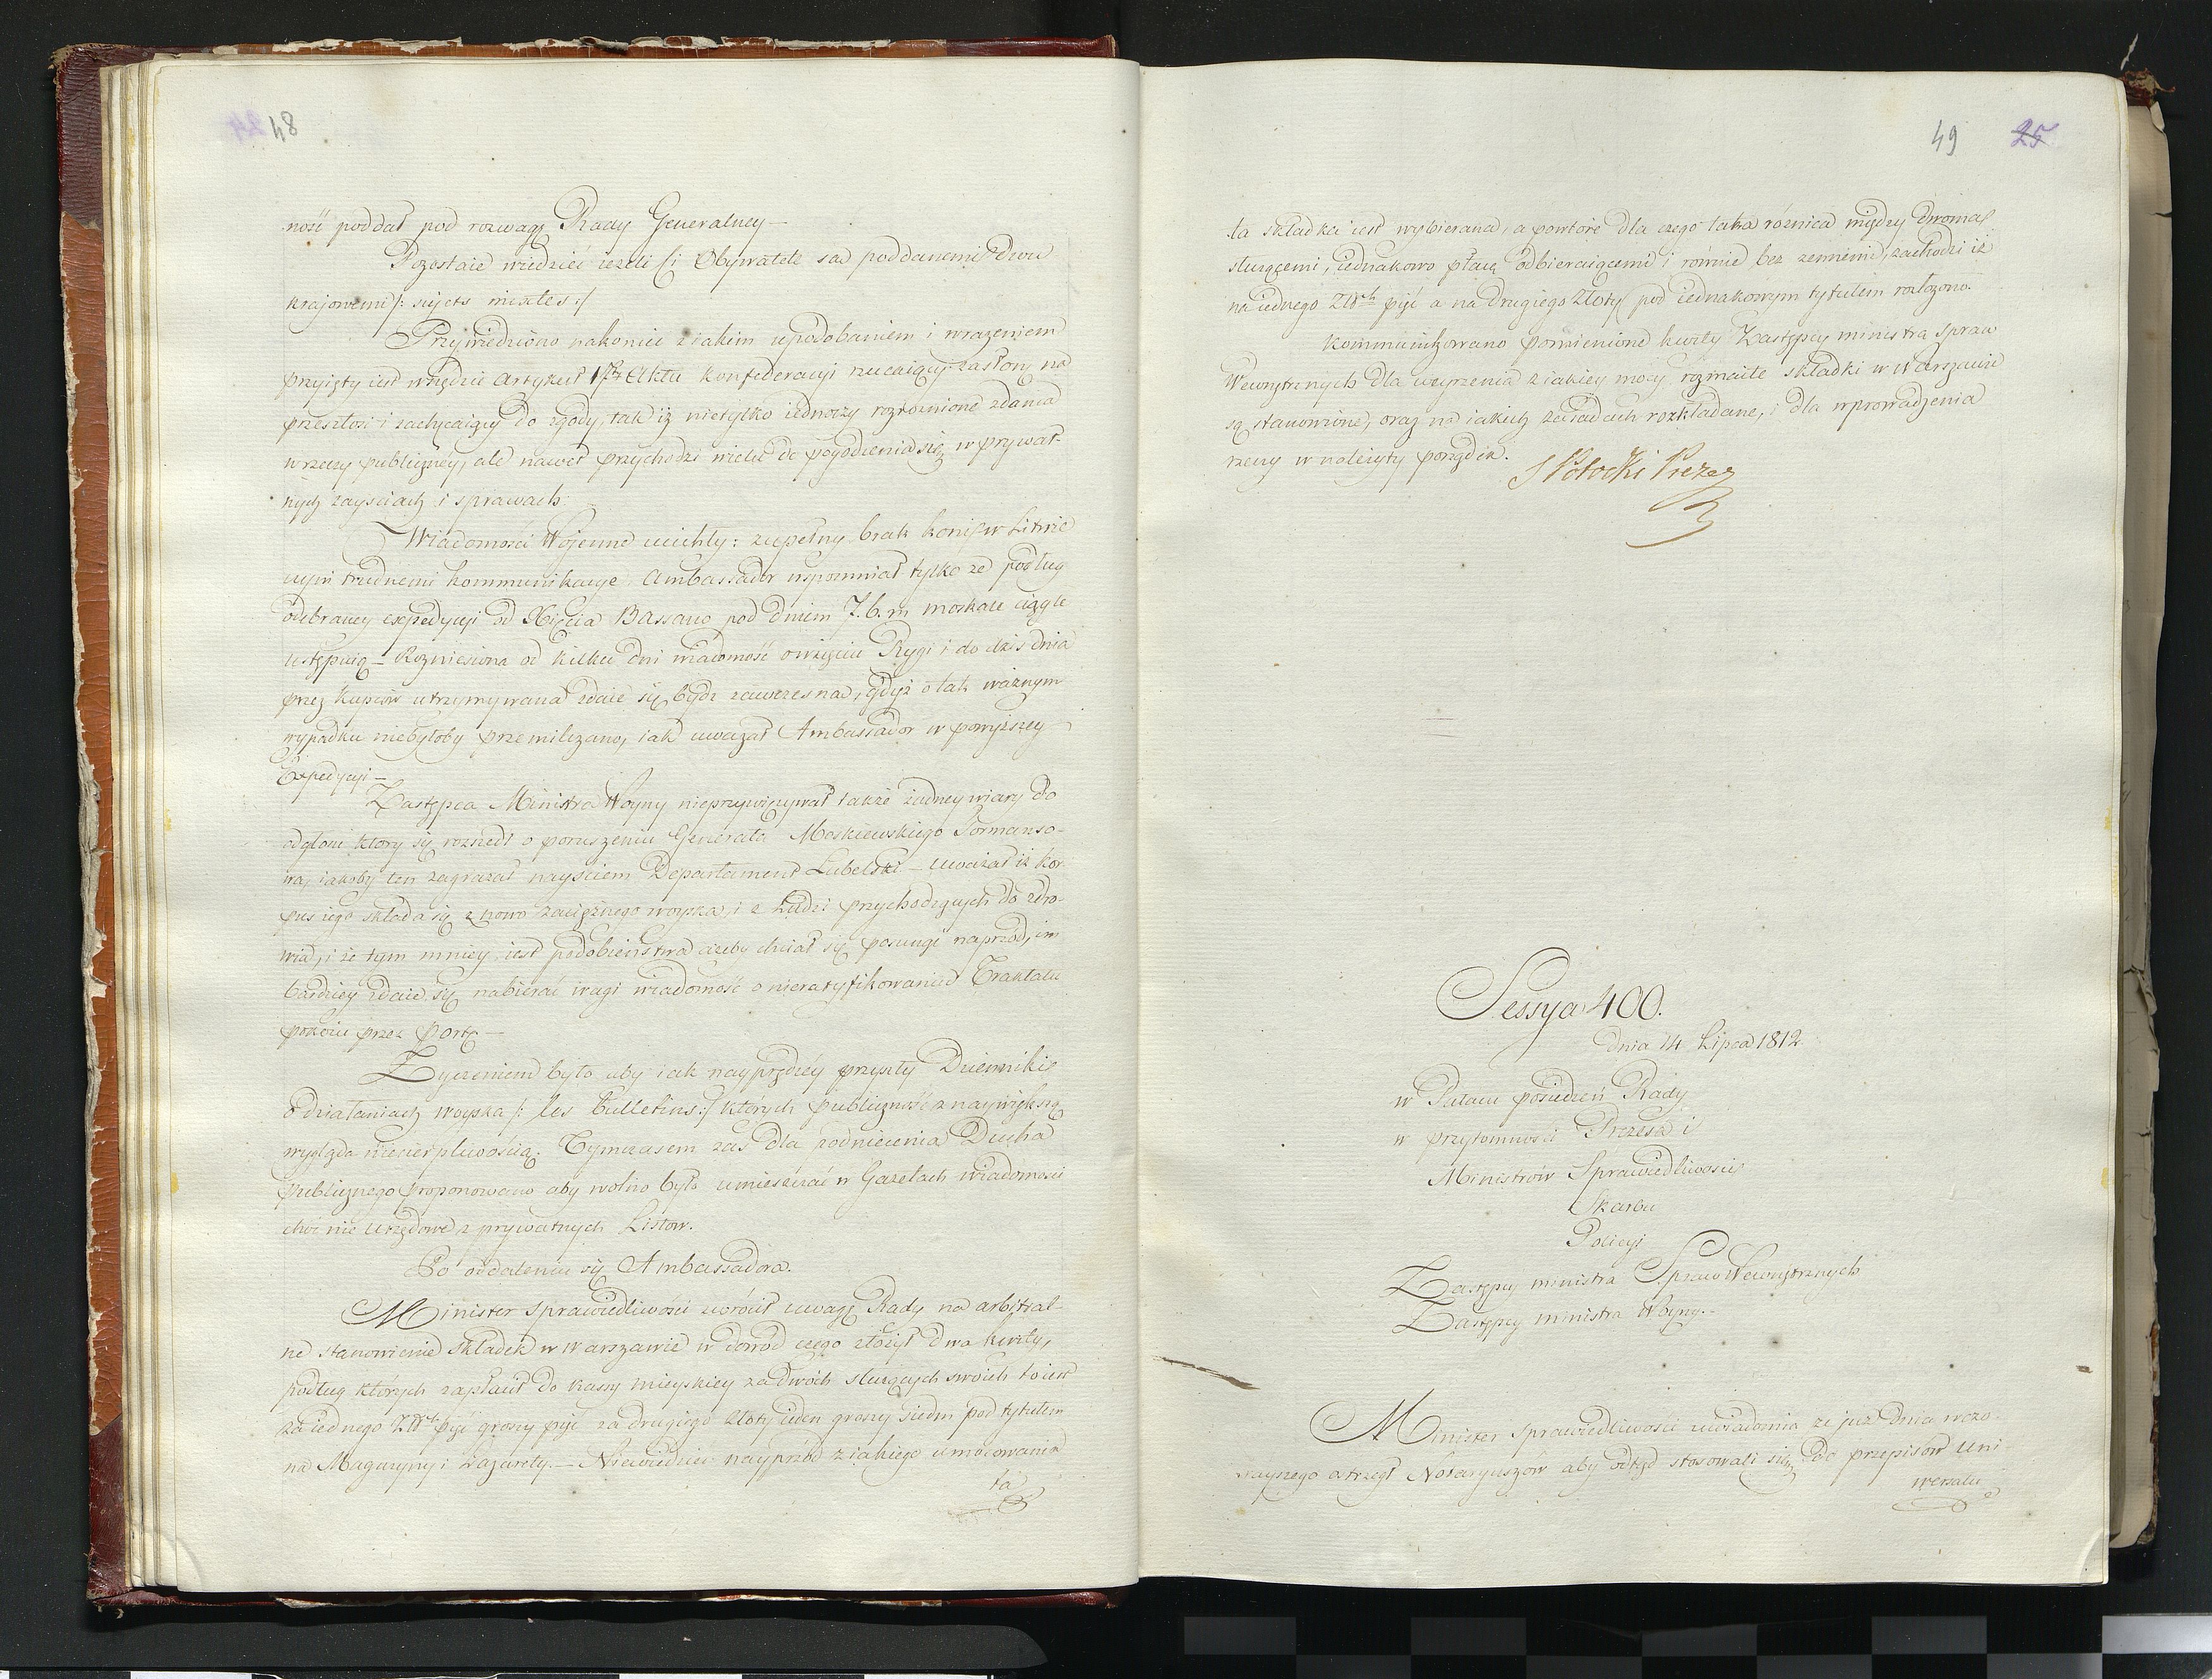 48
ność poddał pod rozwagę Rady Generalney —
Pozostaie wiedzieć ieżeli ci Obywatele są poddanemi Dwu
krajowemi /: sujets mixtes :/
Przywiedziono nakoniec z iakim upodobaniem i wrażeniem
przyięty iest wszędzie Artykuł Aktu Konfederacyi rzucaiący zasłonę na
przeszłość i zachęcaiący do zgody, tak iż nietylko iednoczy rozróżnione zdania
w rzeczy publiczney, ale nawet przychodzi wielu do pogodzenia się w prywat-
nych zayściach i sprawach.
Wiadomości Woienne ucichły: zupełny brak koni w Litwie
czyni trudnemi kommunikacye. Ambassador wspomniał tylko że podług
odebraney expedycyi od Xięcia Bassano pod dniem 7. b. m. Moskale ciągle
ustępuią — Rozniesiona od kilku dni wiadomość o wzięciu Rygi i do dziś dnia
przez kupców utrzymywana zdaie się bydź zawczesna, gdyż o tak ważnym
wypadku niebyłoby przemilczano, iak uważał Ambassador w powyższey
Expedycyi —
Zastępca Ministra Woyny nieprzywięzywał także żadney wiary do
odgłosu który się rozszedł o poruszeniu Generała Moskiewskiego Tormanso-
wa, iakoby ten zagrażał nayściem Departament Lubelski — uważał iż kor-
pus iego składa się z nowo zaciężnego woyska, i z Ludzi przychodzących do zdro-
wia, i że tym mniey iest podobieństwa ażeby chciał się posunąć naprzód, im
bardziey zdaie się nabierać wagi wiadomość o nieratyfikowaniu Traktatu
pokoiu przez Portę —
Życzeniem było aby iak nayprędzéy przyszły Dzienniki
o działaniach woyska /: les bulletins :/ których publiczność z naywiększą
wygląda niecierpliwością. Tymczasem zaś dla podniecenia Ducha
publicznego proponowano aby wolno było umieszczać w Gazetach wiadomości
choć nie urzędowe z prywatnych Listów.
Po oddaleniu się Ambassadora.
Minister Sprawiedliwości zwrócił uwagę Rady na arbitral-
ne stanowienie składek w Warszawie w dowód czego złożył dwa kwity,
podług których zapłacił do kassy mieyskiey za dwóch służących swoich to iest
za iednego Złotych pięć groszy pięć za drugiego Złoty ieden groszy siedm pod tytułem
na Magazyny i Lazarety. — Niewiedzieć nayprzód z iakiego umocowania
ta
49 25
ta składka iest wybierana, a powtóre dla czego taka różnica między dwoma
służącemi, iednakowo płacę odbieraiącemi i równie bez zemienia, zachodzi iż
na iednego Złotych pięć a na drugiego Złoty pod iednakowym tytułem rozłożono.
Kommunikowano pomienione kwity Zastępcy ministra Spraw
Wewnętrznych dla weyrzenia z iakiey mocy rozmaite składki w Warszawie
są stanowione, oraz na iakich zasadach rozkładane, i dla wprowadzenia
rzeczy w należyty porządek.
S Potocki Prezes
Sessya 400.
dnia 14 Lipca 1812
w Pałacu posiedzeń Rady
w przytomności Prezesa i
Ministrów Sprawiedliwości
Skarbu
Policyi
Zastępcy ministra Spraw Wewnętrznych
Zastępcy ministra Woyny.
Minister Sprawiedliwości uwiadomia że już dnia wczo-
rayszego ostrzegł Notaryuszów aby odtąd stosowali się do przepisów Uni-
wersału